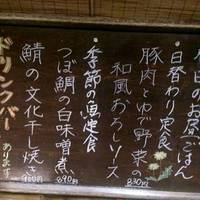 今日のお昼ごはん
・日替わり定食
豚肉とゆで野菜の
和風おろしソース
830円
・季節の魚定食
つぼ鯛の白味噌煮
890円
鯖の文化干し焼き
900円
ドリンクバー
あります